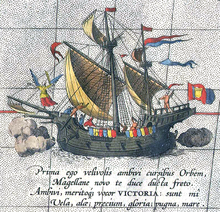 Prima ego velivolis ambivi cursibus Orbem,
Magellane novo te duce ducta freto.
Ambivi, meritoq vocor VICTORIA: sunt mi
Vela, alæ; precium, gloria; pugna, mare.